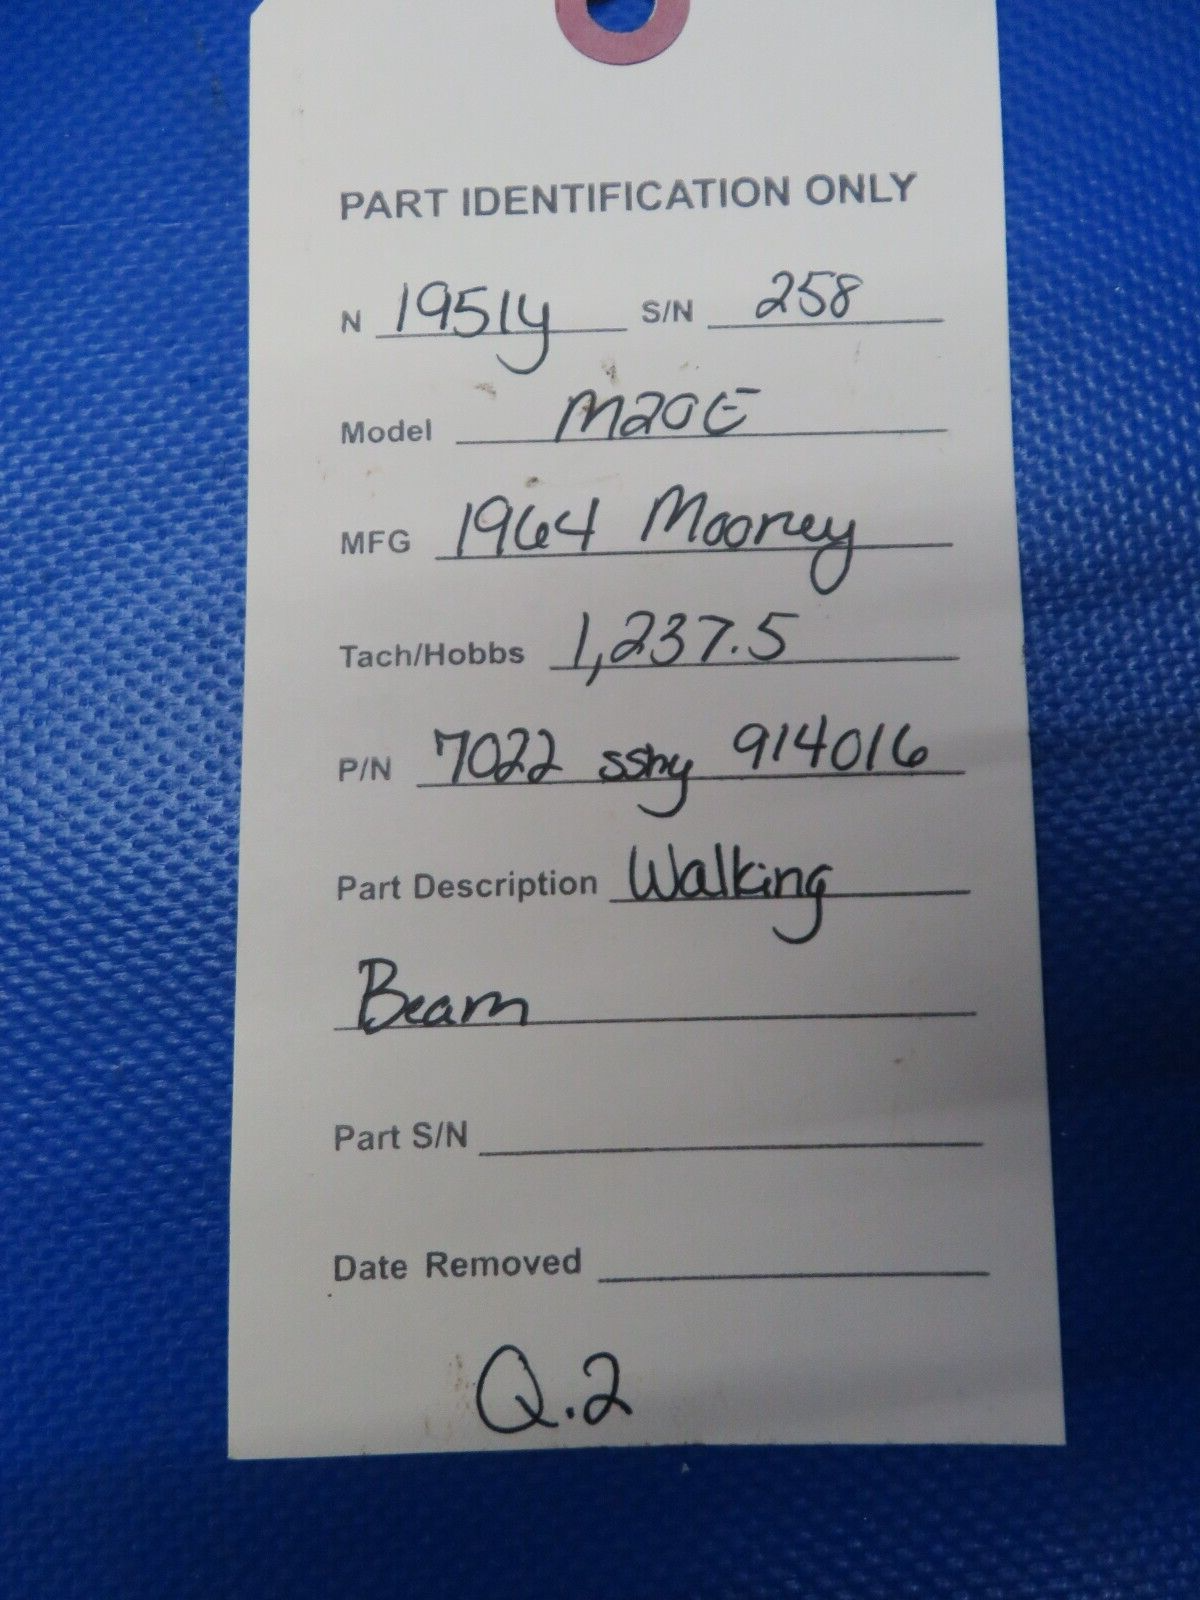 PART IDENTIFICATION ONLY
N 1951y S/N 258
Model M20E
MFG 1964 Mooney
Tach/Hobbs 1,237.5
P/N 7022 914016
Part Description Walking
Beam
Part S/N
Date Removed
Q.2